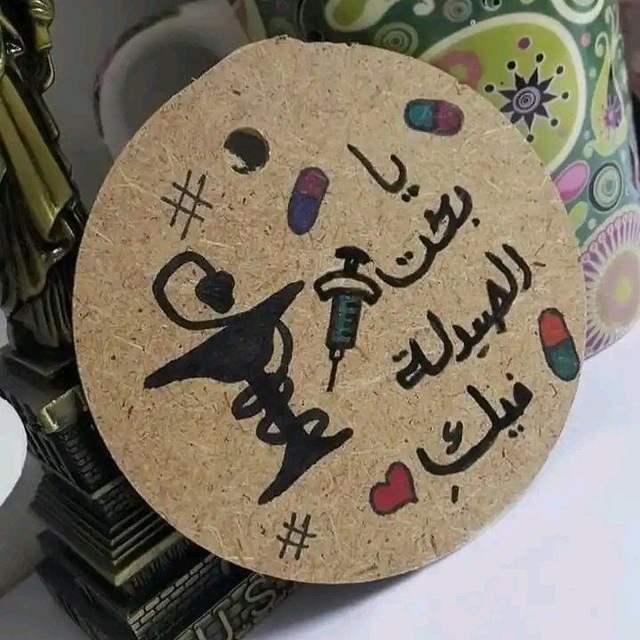 يا
بخت
الصيدلة
فيكِ
#
#
U.S.